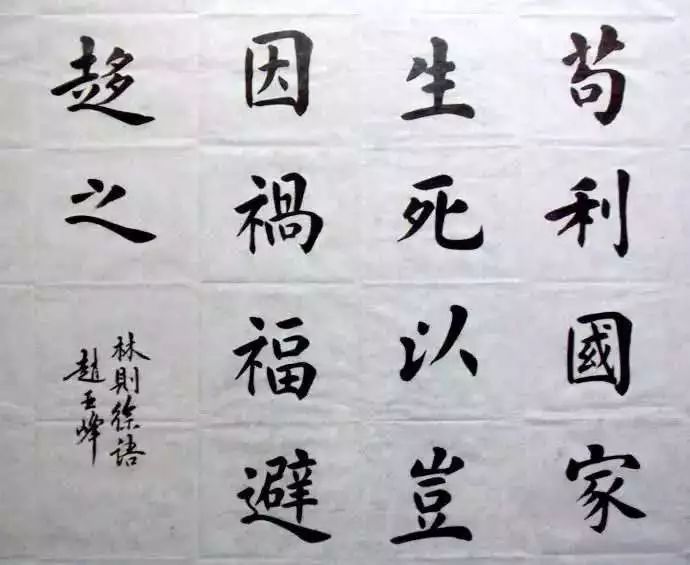 苟利國家
生死以豈
因禍福避
趍之
林則徐語
趙玉峰